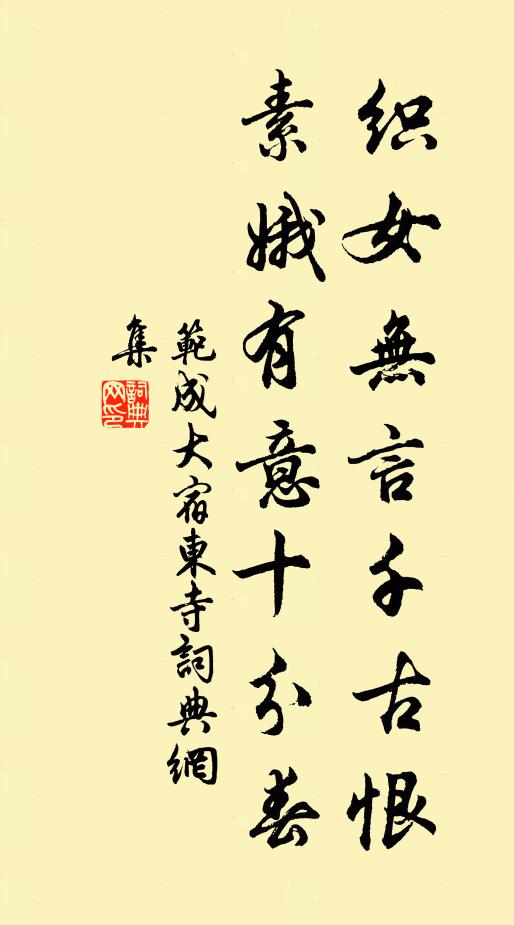 织女無言千古恨
素娥有意十分春
範成大宿東寺詞典網
集
詞典
网印